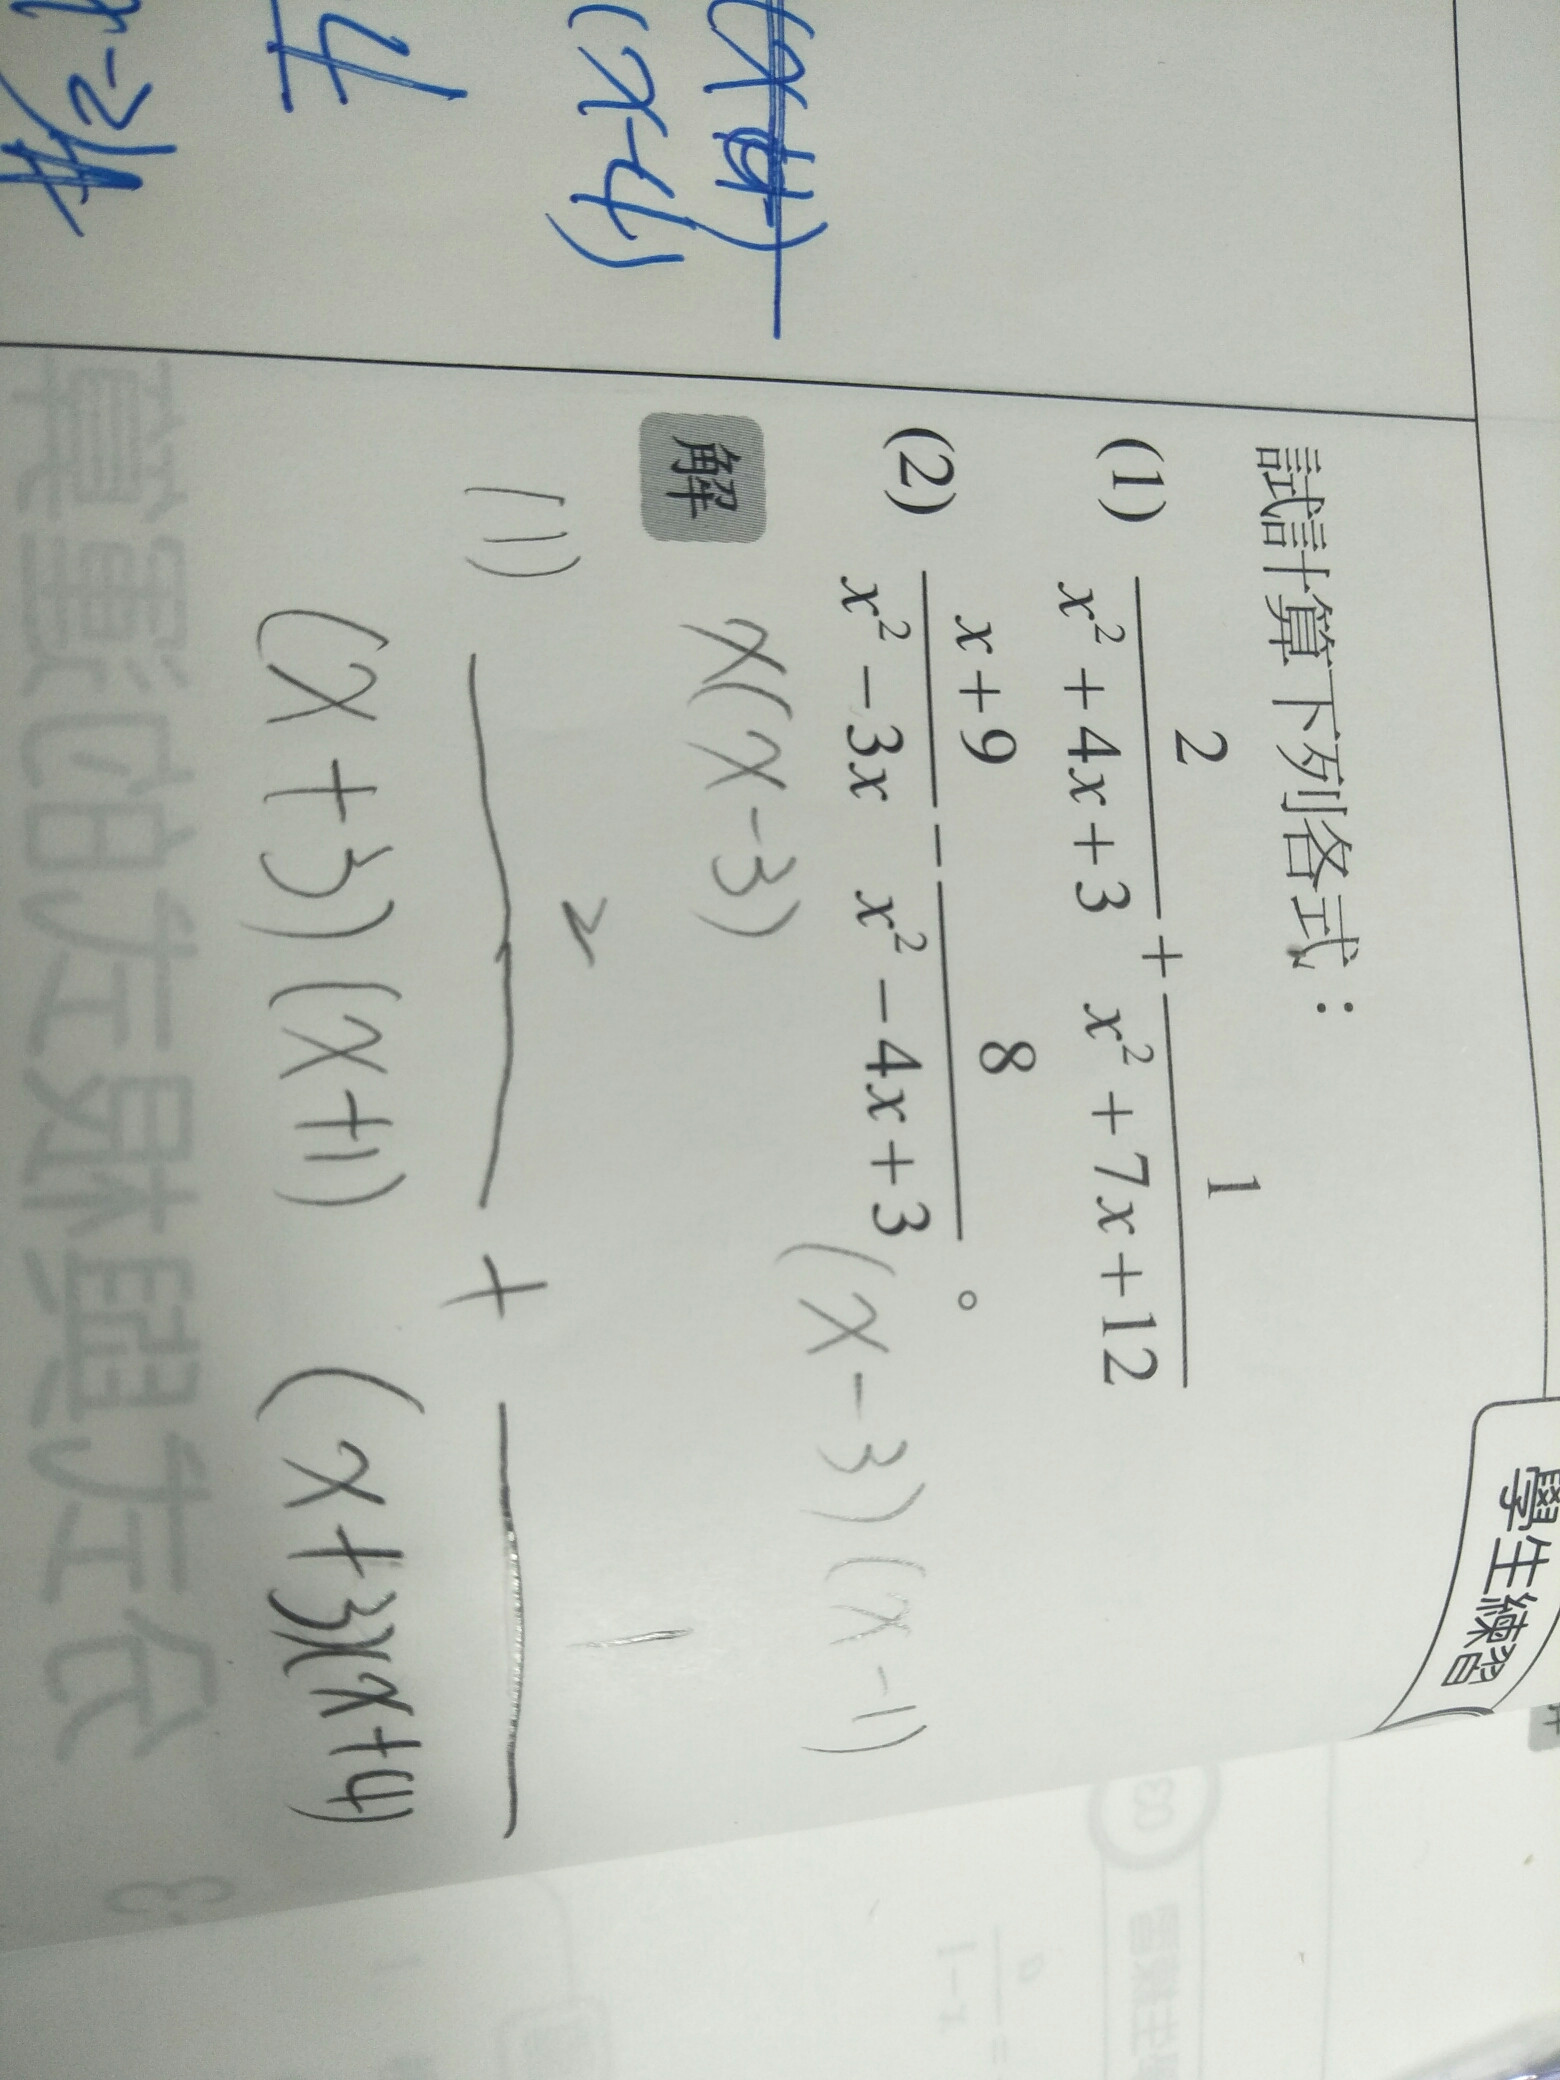 學生練習
試計算下列各式：
(1) \frac{2}{x^2+4x+3} + \frac{1}{x^2+7x+12}
(2) \frac{x+9}{x^2-3x} - \frac{8}{x^2-4x+3}。
x(x-3) (x-3)(x-1)
解
(1) \frac{2}{(x+3)(x+1)} + \frac{1}{(x+3)(x+4)}
(x-4)
4